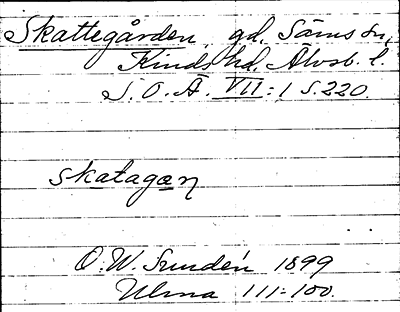 Skattegården, gd. Säms sn,
Kinds hd. Älvsb. l.
S. O. Ä. VII:1 s. 220.
skatagan
O. W. Sundén 1899
Ulma 111:100.